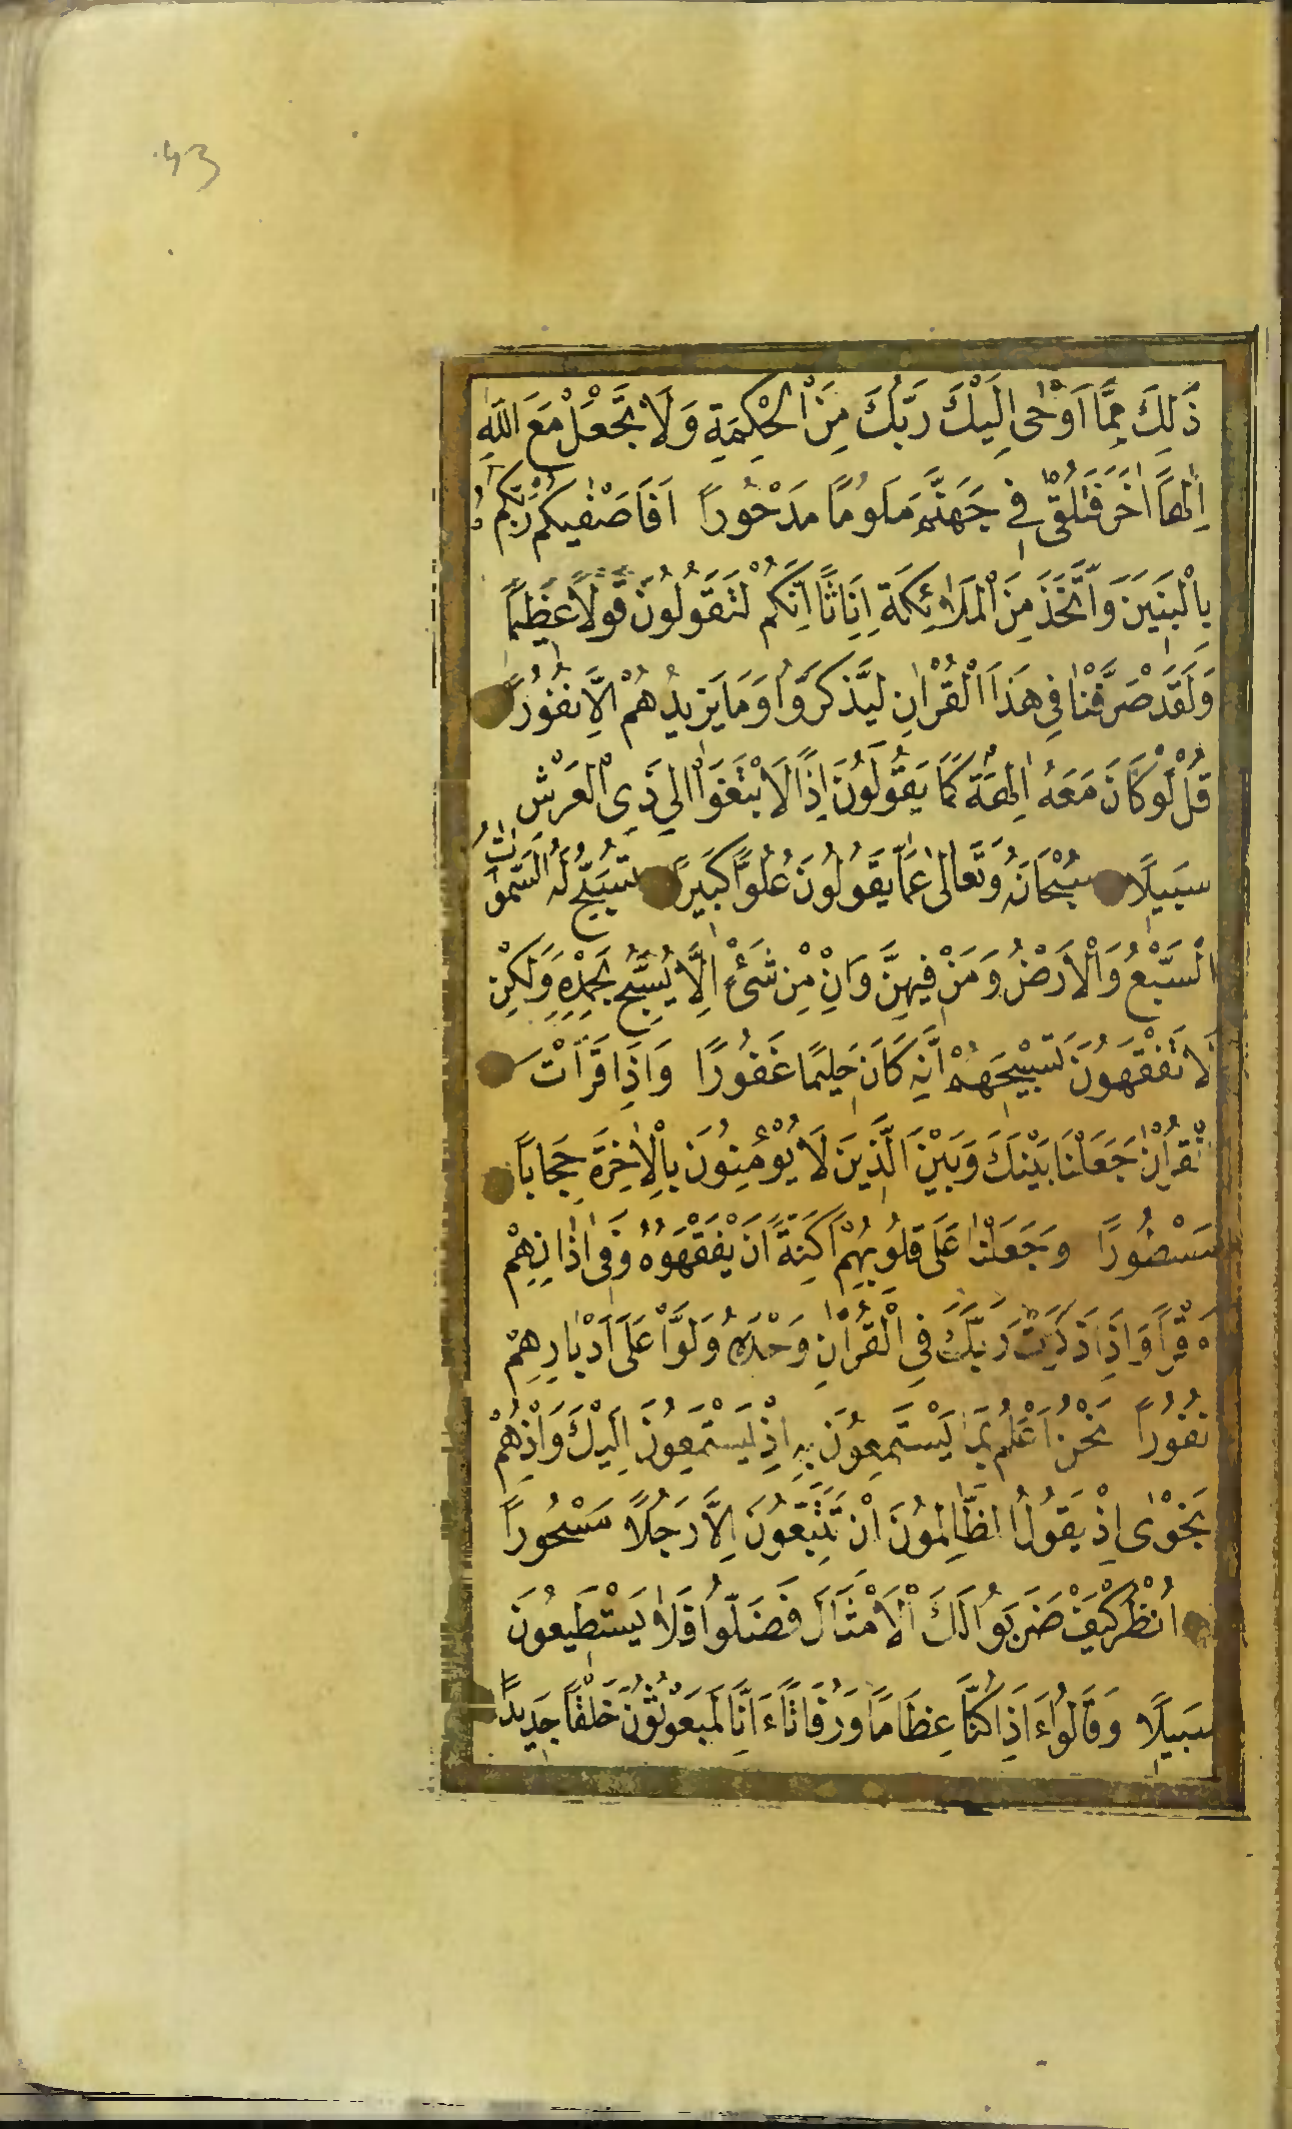 43
ذَلِكَ مِمَّا اَوْحٰى اِلَيْكَ رَبُّكَ مِنَ الْحِكْمَةِ وَلَا تَجْعَلْ مَعَ اللّٰهِ
اِلٰهًا اٰخَرَ فَتُلْقٰى فِي جَهَنَّمَ مَلُومًا مَدْحُورًا اَفَاَصْفٰيكُمْ رَبُّكُمْ
بِالْبَنِينَ وَاتَّخَذَ مِنَ الْمَلٰئِكَةِ اِنَاثًا اِنَّكُمْ لَتَقُولُونَ قَوْلًا عَظِيمًا
وَلَقَدْ صَرَّفْنَا فِي هَذَا الْقُرْاٰنِ لِيَذَّكَّرُوا وَمَا يَزِيدُهُمْ اِلَّا نُفُورًا
قُلْ لَوْ كَانَ مَعَهُ اٰلِهَةٌ كَمَا يَقُولُونَ اِذًا لَابْتَغَوْا اِلٰي ذِي الْعَرْشِ
سَبِيلًا سُبْحَانَهُ وَتَعَالٰى عَمَّا يَقُولُونَ عُلُوًّا كَبِيرًا تُسَبِّحُ لَهُ السَّمٰوَاتُ
السَّبْعُ وَالْاَرْضُ وَمَنْ فِيهِنَّ وَاِنْ مِنْ شَىْءٍ اِلَّا يُسَبِّحُ بِحَمْدِهِ وَلَكِنْ
لَا تَفْقَهُونَ تَسْبِيحَهُمْ اِنَّهُ كَانَ حَلِيمًا غَفُورًا وَاِذَا قَرَاْتَ
الْقُرْاٰنَ جَعَلْنَا بَيْنَكَ وَبَيْنَ الَّذِينَ لَا يُؤْمِنُونَ بِالْاٰخِرَةِ حِجَابًا
مَسْتُورًا وَجَعَلْنَا عَلَى قُلُوبِهِمْ اَكِنَّةً اَنْ يَفْقَهُوهُ وَفِى اٰذَانِهِمْ
وَقْرًا وَاِذَا ذَكَرْتَ رَبَّكَ فِى الْقُرْاٰنِ وَحْدَهُ وَلَّوْا عَلَى اَدْبَارِهِمْ
نُفُورًا نَحْنُ اَعْلَمُ بِمَا يَسْتَمِعُونَ بِهِ اِذْ يَسْتَمِعُونَ اِلَيْكَ وَاِذْ هُمْ
نَجْوٰى اِذْ يَقُولُ الظَّالِمُونَ اِنْ تَتَّبِعُونَ اِلَّا رَجُلًا مَسْحُورًا
اُنْظُرْ كَيْفَ ضَرَبُوا لَكَ الْاَمْثَالَ فَضَلُّوا فَلَا يَسْتَطِيعُونَ
سَبِيلًا وَقَالُوا ءَاِذَا كُنَّا عِظَامًا وَرُفَاتًا ءَاِنَّا لَمَبْعُوثُونَ خَلْقًا جَدِيدًا